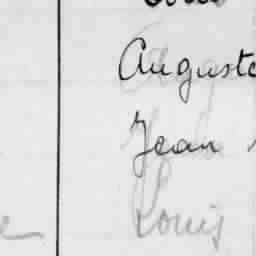 Auguste
Jean
Louis